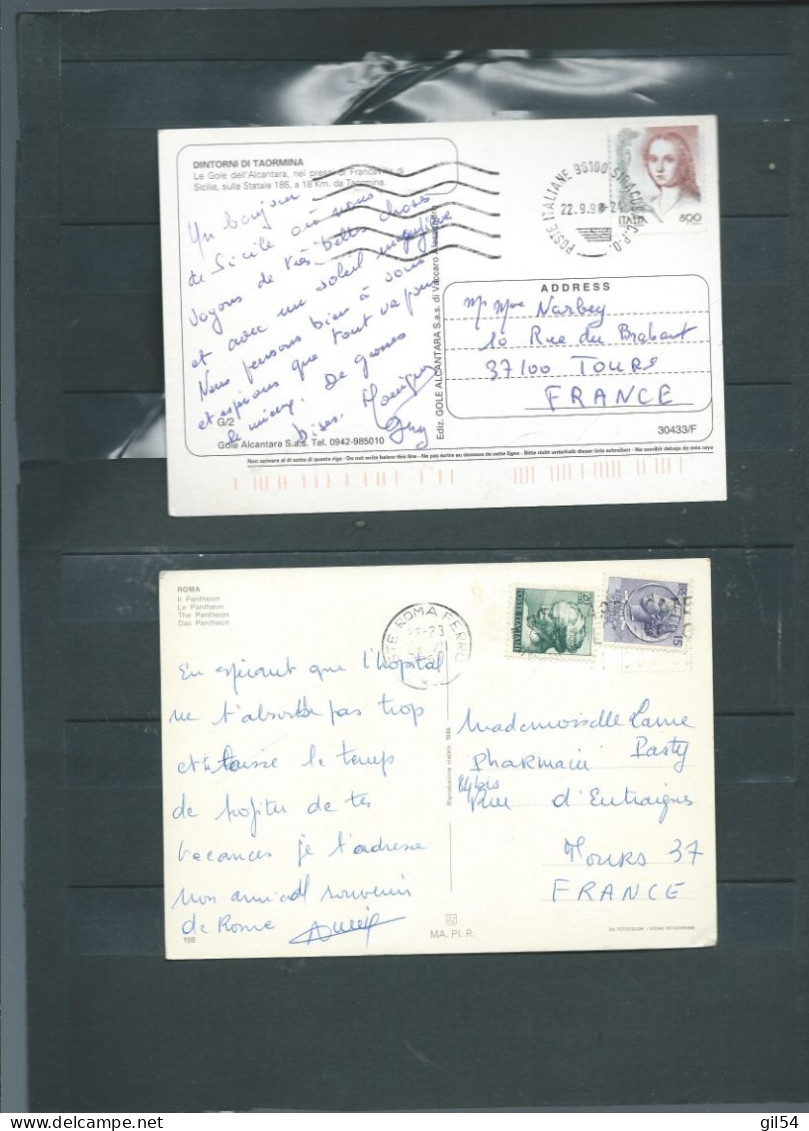 DINTORNI DI TAORMINA
Le Gole dell'Alcantara, nei pressi di Francavilla di
Sicilia, sulla Statale 185, a 18 Km. da Taormina.
Un bonjour
de Sicile où nous
voyons de très belles choses
et avec un soleil magnifique
Nous pensons bien à vous
et espérons que tout va pour
le mieux. De grosses
bises. Monique
Guy
G/2
Gole Alcantara S.a.s. Tel. 0942-985010
Ediz. GOLE ALCANTARA S.a.s. di Vaccaro Alessandro
POSTE ITALIANE 96100 SIRACUSA C.P.O.
22.9.98-24
ITALIA 800
ADDRESS
Mr Mme Narbey
10 Rue du Brabant
37100 TOURS
FRANCE
30433/F
Non scrivere al di sotto di questa riga - Do not write below this line - Ne pas écrire au dessous de cette ligne - Bitte nicht unterhalb dieser linie schreiben - No escribir debajo de esta raya
ROMA
Il Pantheon
Le Pantheon
The Pantheon
Das Pantheon
ROMA FERR
15
En espérant que l'hopital
ne t'absorbe pas trop
et te laisse le temps
de profiter de tes
vacances je t'adresse
mon amical souvenir
de Rome
198
Riproduzione vietata 1968
MA. PI. R.
Mademoiselle
Pharmacie Pasty
84bis Rue d'Entraigues
Tours 37
FRANCE
gil54